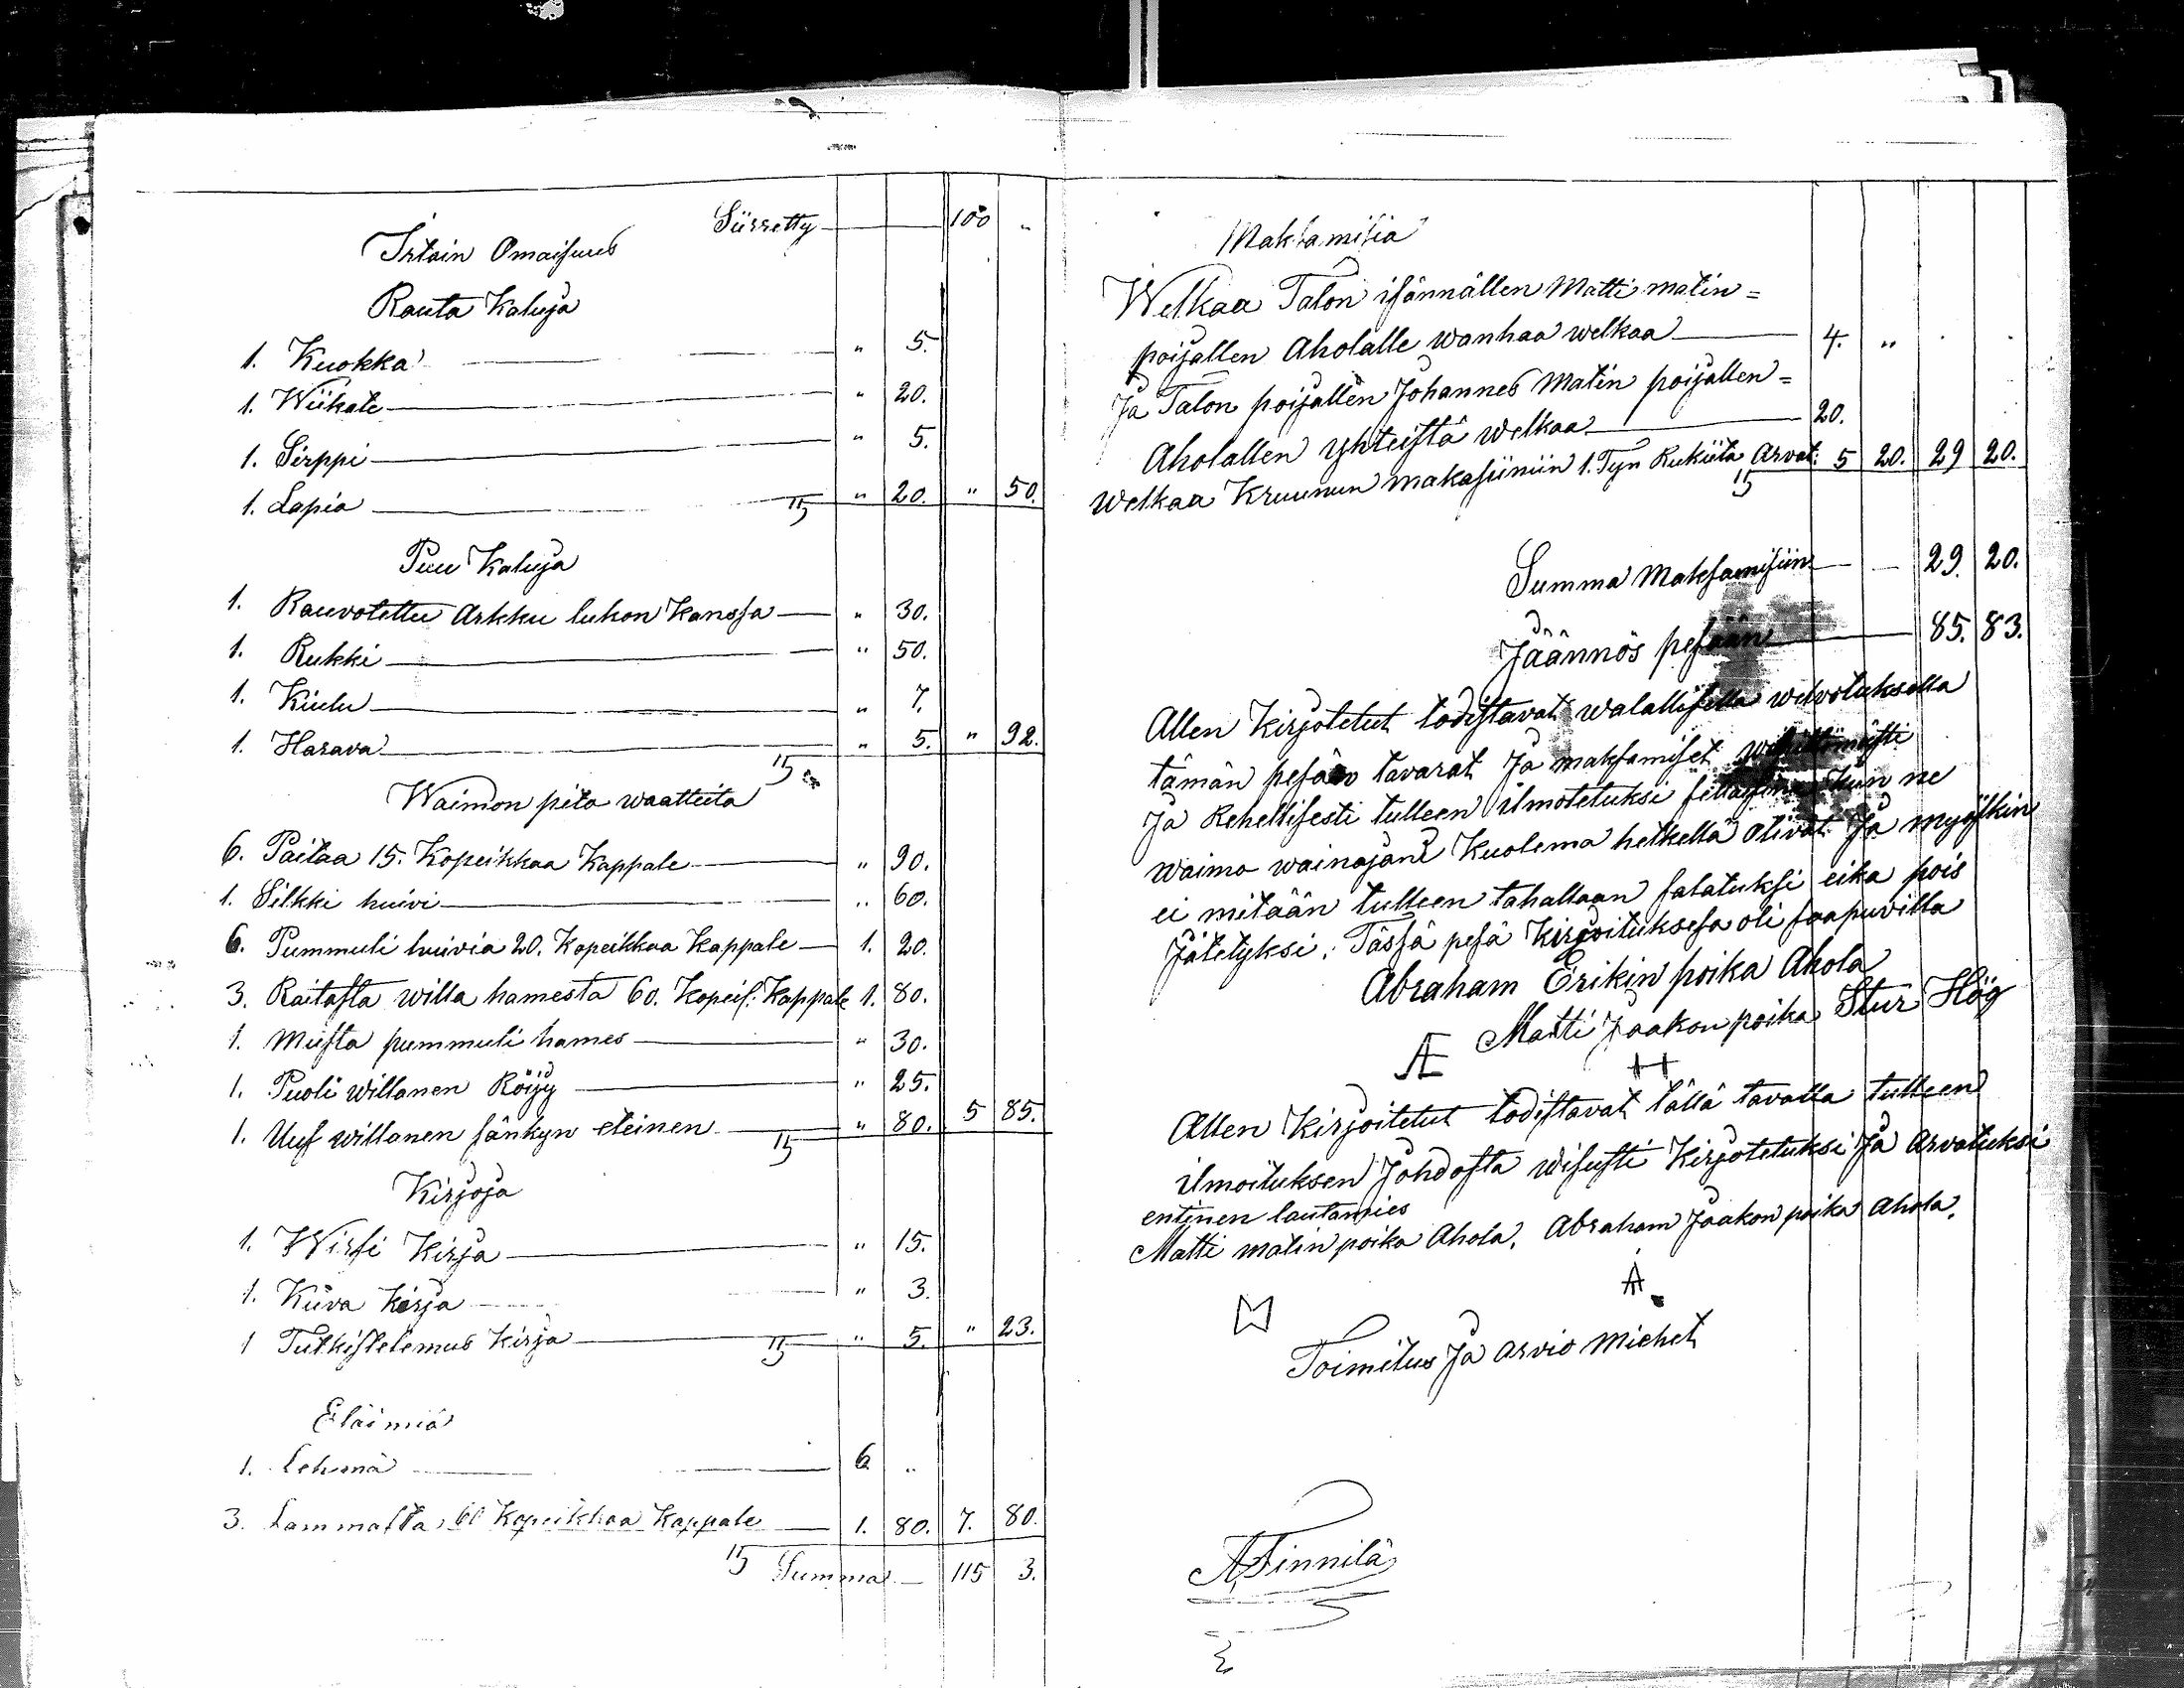 Siirretty 100 "
Irtain Omaisuus
Rauta Kaluja
1. Kuokka " 5.
1. Wiikate " 20.
1. Sirppi " 5.
1. Lapia " 20. " 50.
Puu Kaluja
1. Rauvotettu Arkku lukon Kanssa " 30.
1. Rukki " 50.
1. Kiulu " 7.
1. Harava " 5. " 92.
Waimon pito waatteita
6. Paitaa 15. Kopeikkaa Kappale " 90.
1. Silkki huivi " 60.
6. Pummuli huivia 20. Kopeikkaa Kappale 1. 20.
3. Raitasta willa hamesta 60. Kopeik: Kappale 1. 80.
1. Musta pummuli hames " 30.
1. Puoli willanen Röijy " 25.
1. Uusi willanen sänkyn eteinen " 80. 5 85.
Kirjoja
1. Wirsi Kirja " 15.
1. Kuva Kirja " 3.
1 Tutkistelemus Kirja " 5. " 23.
Eläimiä
1. Lehmä 6 "
3. Lammasta 60 Kopeikkaa Kappale 1. 80. 7. 80.
Summa 115 3.
Maksamisia
Welkaa Talon isännällen Matti matin=
poijallen Aholalle wanhaa welkaa 4. "
Ja Talon poijallen Johannes Matin poijallen=
Aholallen yhteistä welkaa 20.
Welkaa Kruunun makasiiniin 1. Tyn Rukiita Arvat: 5 20. 29 20.
Summa Maksamisiin 29. 20.
Jäännös pesään 85. 83.
Allen Kirjotetut todistavat walallisella welvotuksella
tämän pesän tavarat Ja maksamiset
Ja Rehellisesti tulleen ilmotetuksi kun ne
waimo wainajan Kuolema hetkellä olivat Ja myöskin
ei mitään tulleen tahallaan salatuksi eikä pois
Jätetyksi. Tässä pesä Kirjoituksesa oli saapuvilla
Abraham Erikin poika Ahola
Matti Jaakon poika Stur Hög
AE H
Allen Kirjoitetut todistavat tällä tavalla tulleen
ilmoituksen Johdosta wisusti Kirjotetuksi Ja Arvatuksi
entinen lautamies
Matti matin poika Ahola. Abraham Jaakon poika Ahola.
A
Toimitus Ja arvio miehet
A. Finnilä